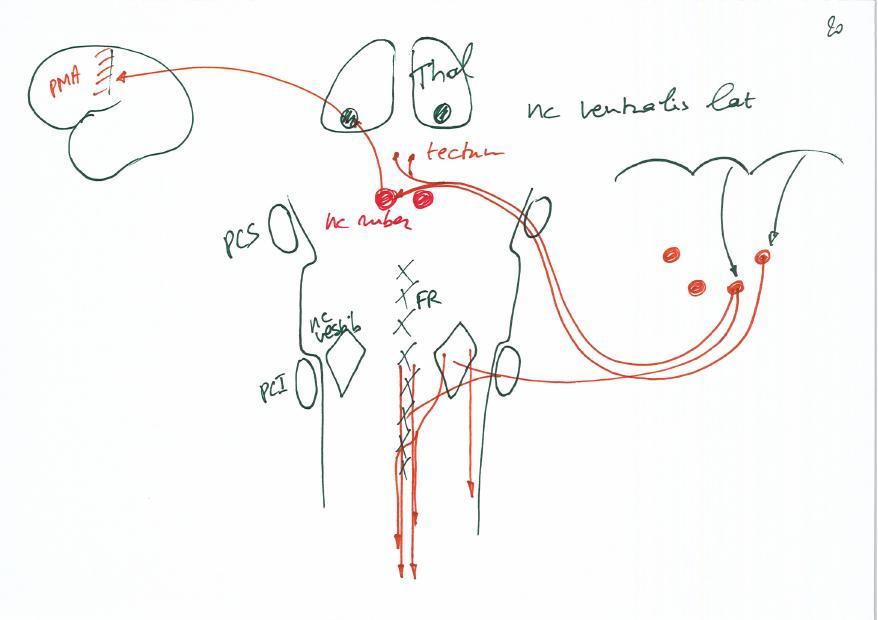 80
PMA
Thal
nc ventralis lat
tectum
nc ruber
PCS
FR
nc
vestib
PCI